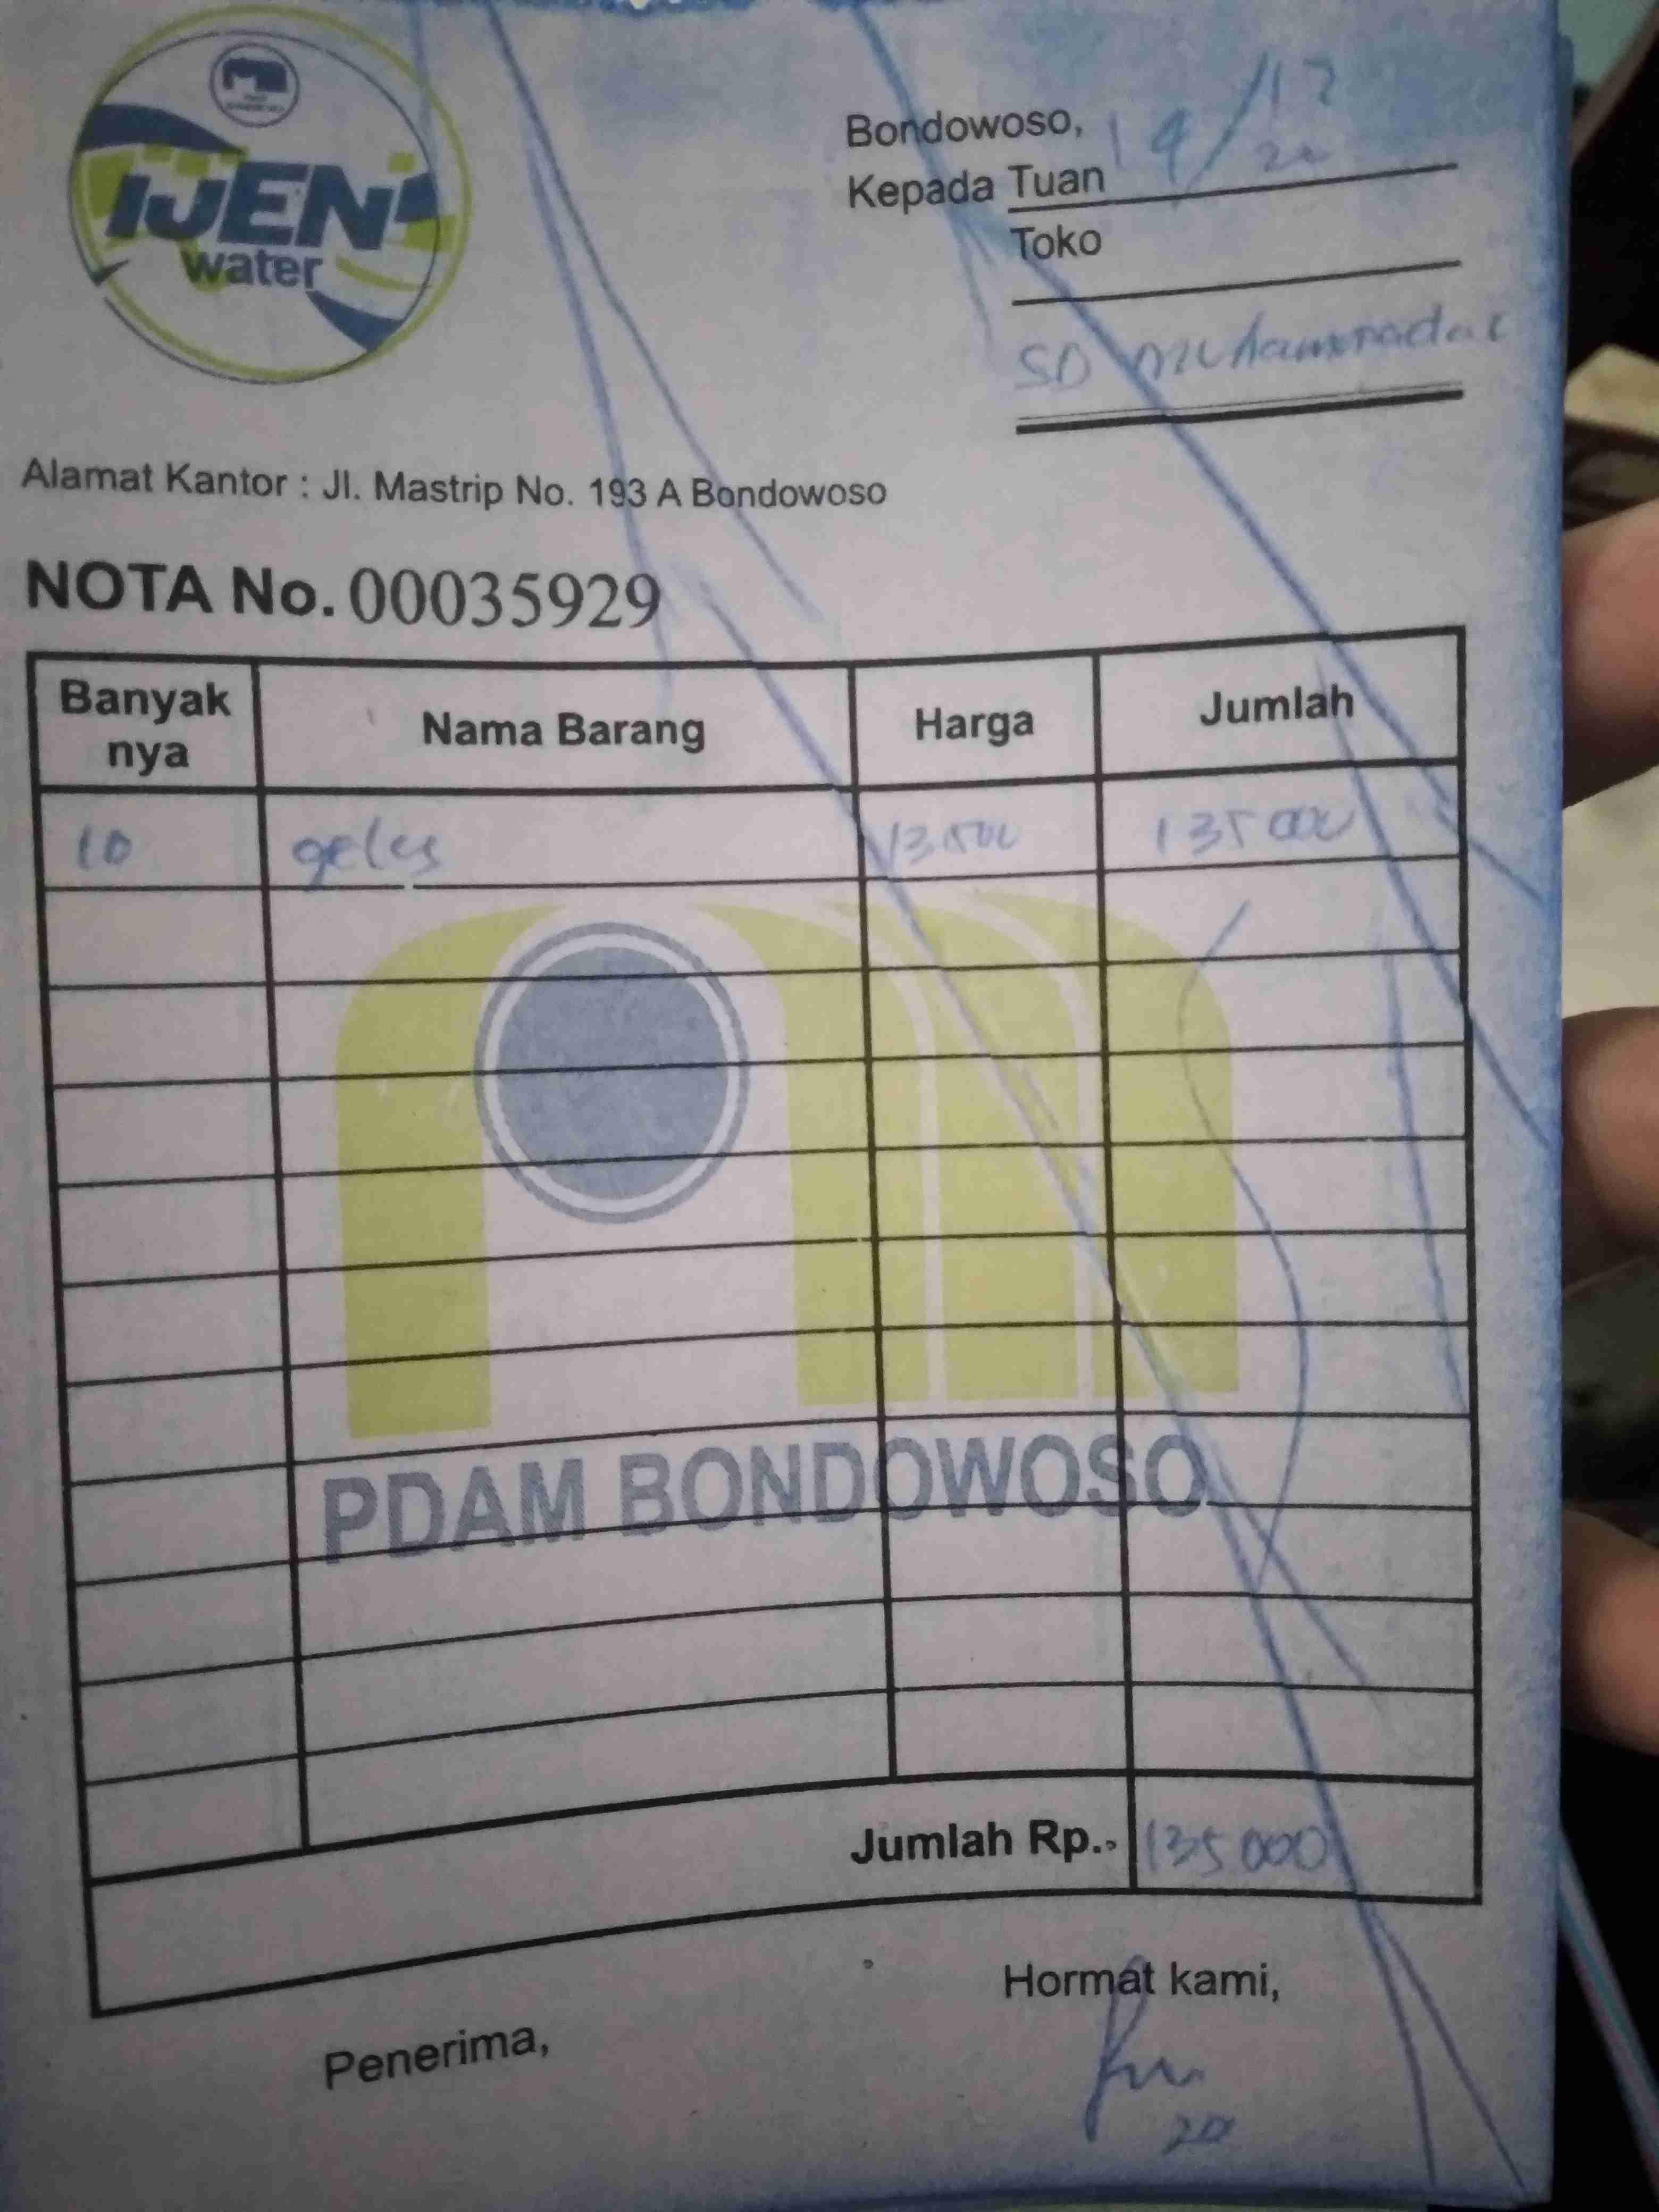 IJEN
water
Bondowoso, 19/12
20
Kepada Tuan
Toko
SD muhammadai
Alamat Kantor : Jl. Mastrip No. 193 A Bondowoso
NOTA No. 00035929
Banyak nya Nama Barang Harga Jumlah
10 gelas 13.500 135 000
PDAM BONDOWOSO
Jumlah Rp.. 135 000
Hormat kami,
Penerima,